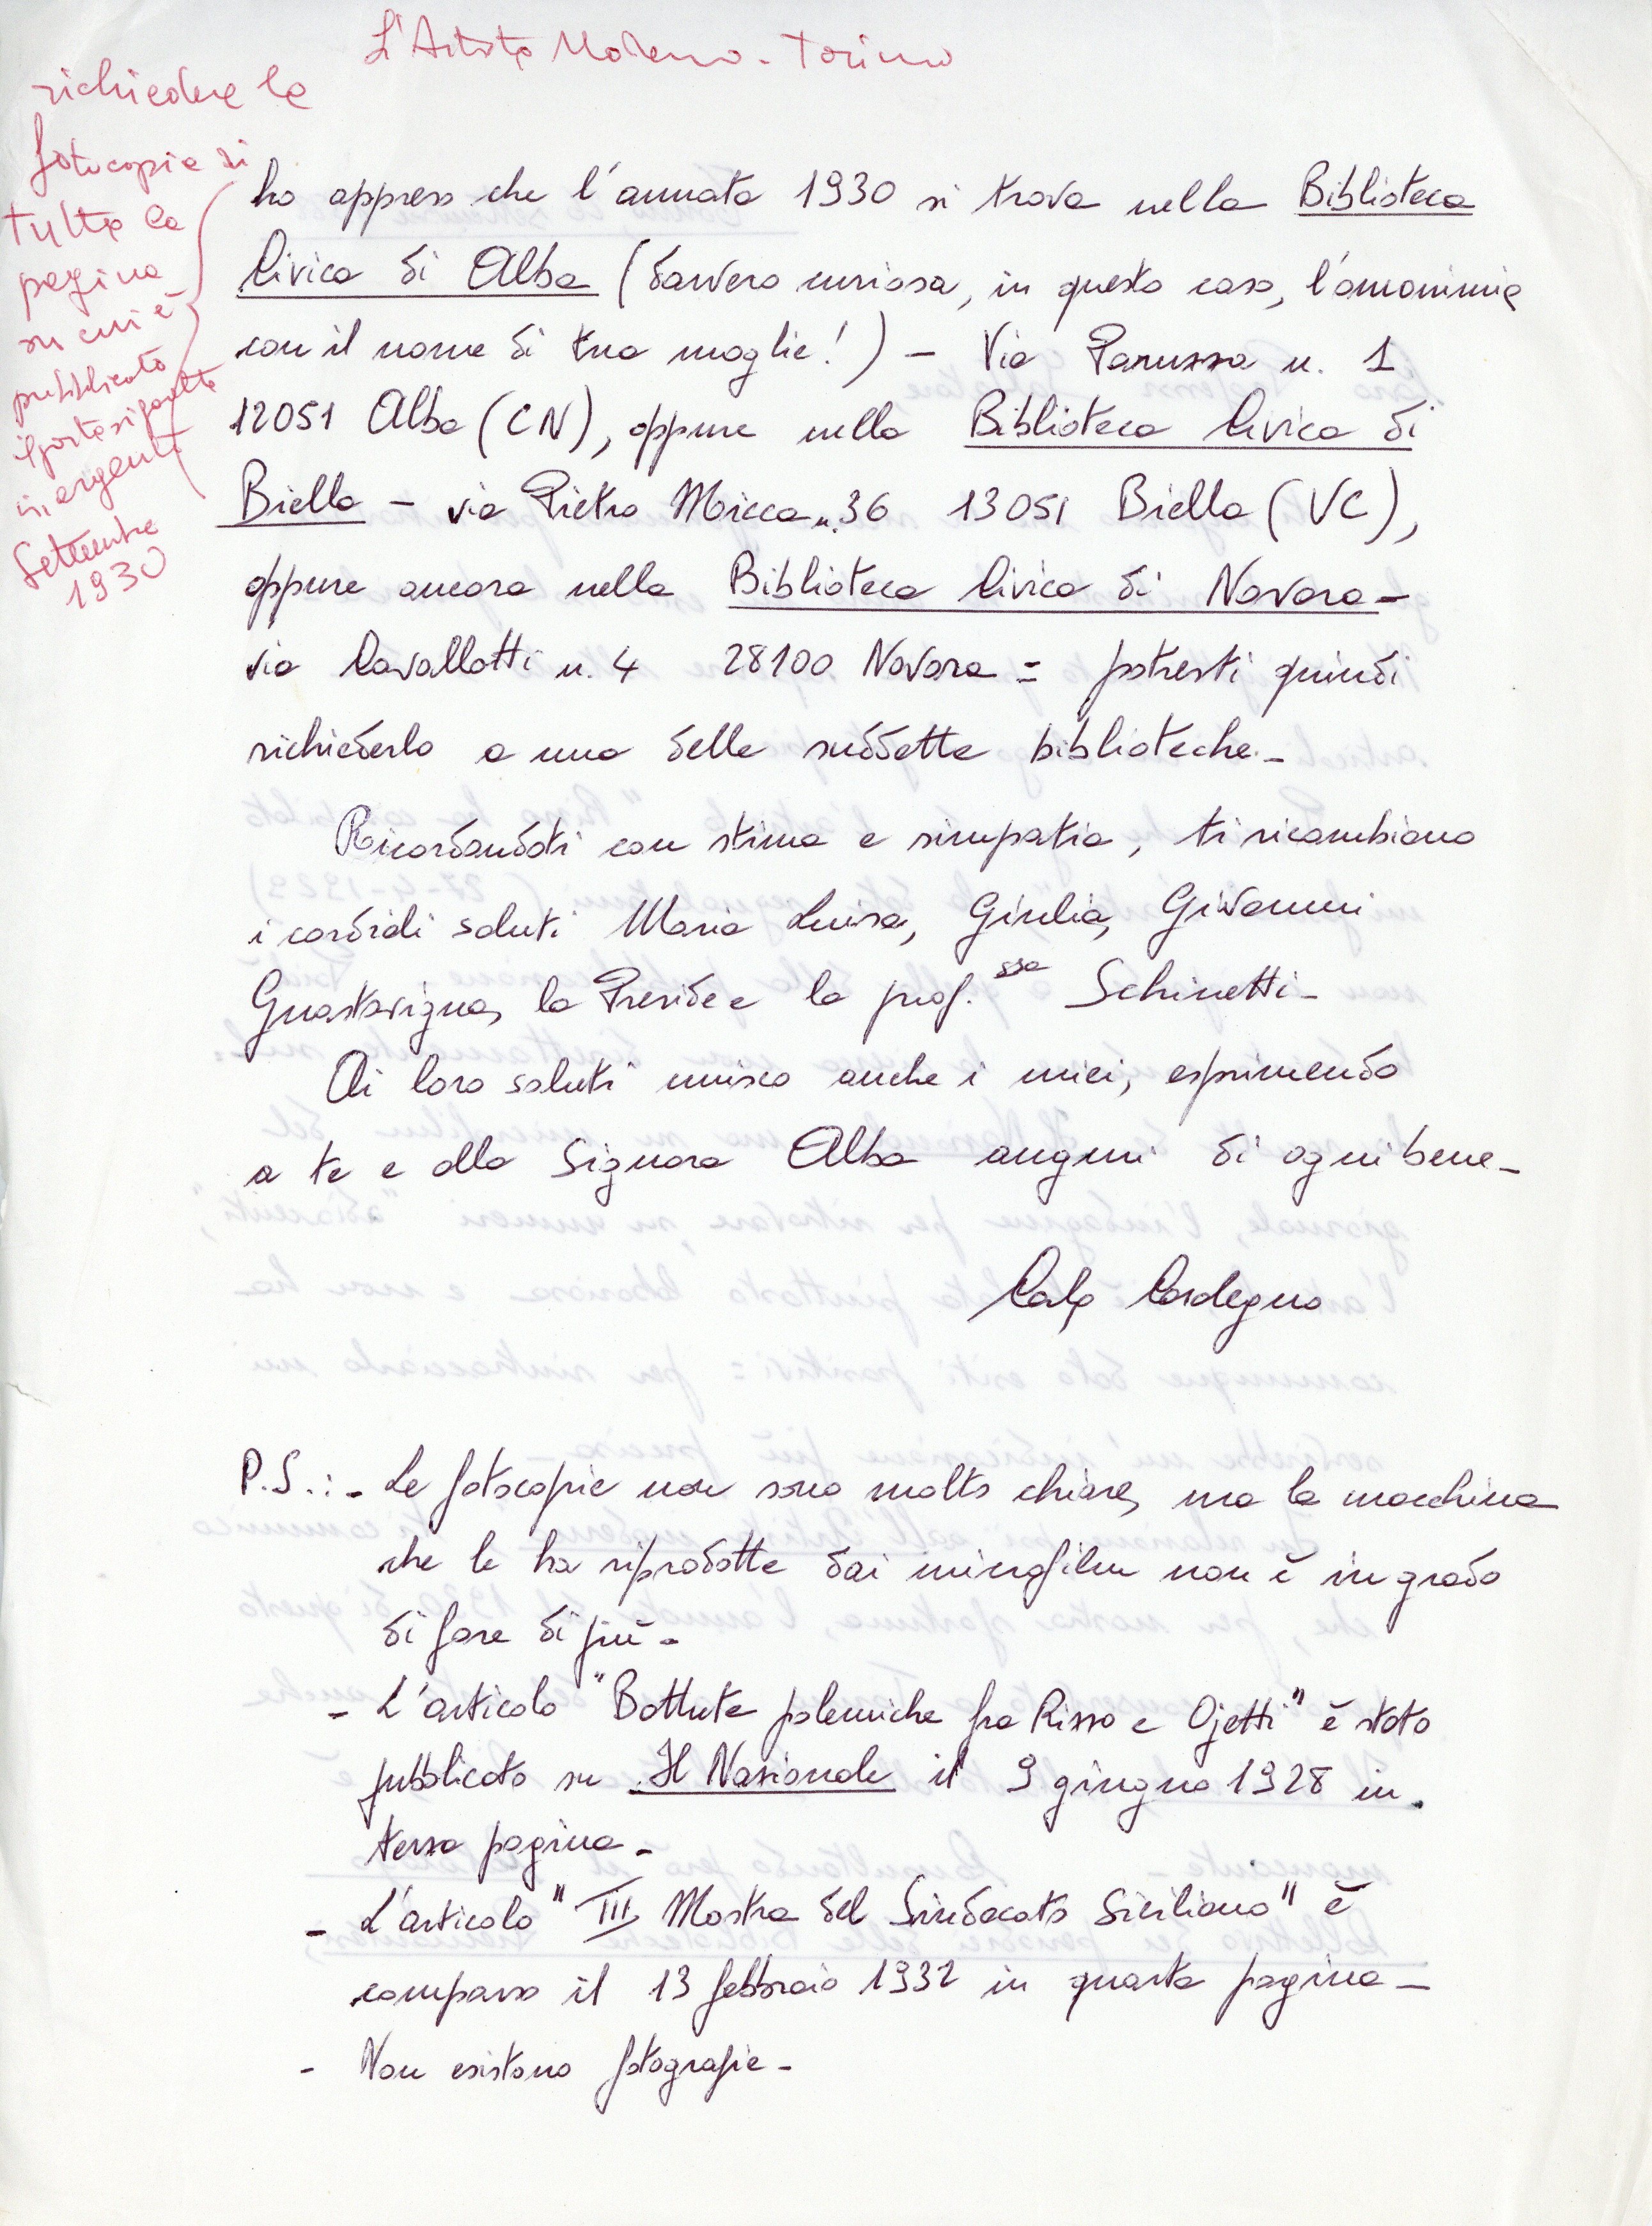 L'Artista Moderno - Torino
richiedere la
fotocopia di
tutta la
pagina
su cui è
pubblicato
il portasigarette
in argento
Settembre
1930
ho appreso che l'annata 1930 si trova nella Biblioteca
Civica di Alba (davvero curiosa, in questo caso, l'omonimia
con il nome di tua moglie!) - Via Paruzza n. 1
12051 Alba (CN), oppure nella Biblioteca Civica di
Biella - via Pietro Micca n. 36 13051 Biella (VC),
oppure ancora nella Biblioteca Civica di Novara -
via Cavallotti n. 4 28100 Novara = potresti quindi
richiederlo a una delle suddette biblioteche. -
Ricordandoti con stima e simpatia, ti ricambiano
i cordiali saluti Maria Luisa, Giulia, Giovanni
Guastavigna, la Preside e la prof.ssa Schinetti -
Ai loro saluti unisco anche i miei, esprimendo
a te e alla Signora Alba auguri di ogni bene -
Carla Cardegno
P.S.: - Le fotocopie non sono molto chiare, ma la macchina
che le ha riprodotte dai microfilm non è in grado
di fare di più -
- L'articolo "Battute polemiche fra Rizzo e Ojetti" è stato
pubblicato su Il Nazionale il 9 giugno 1928 in
terza pagina -
- L'articolo "III Mostra del Sindacato Siciliano" è
comparso il 13 febbraio 1932 in quarta pagina -
- Non esistono fotografie -